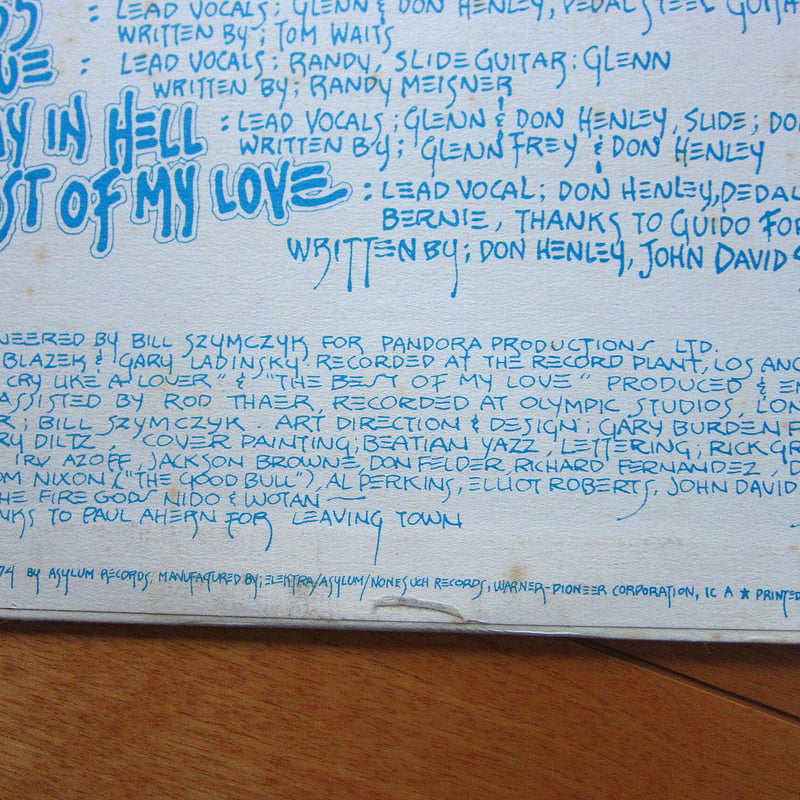 : LEAD VOCALS; GLENN & DON HENLEY, PEDAL STEEL GUITA
WRITTEN BY; TOM WAITS
: LEAD VOCALS; RANDY, SLIDE GUITAR: GLENN
WRITTEN BY; RANDY MEISNER
AY IN HELL : LEAD VOCALS; GLENN & DON HENLEY, SLIDE; DO
WRITTEN BY; GLENN FREY & DON HENLEY
ST OF MY LOVE : LEAD VOCAL; DON HENLEY, PEDAL
BERNIE, THANKS TO GUIDO FOR
WRITTEN BY; DON HENLEY, JOHN DAVID S
NEERED BY BILL SZYMCZYK FOR PANDORA PRODUCTIONS LTD.
BLAZEK & GARY LADINSKY. RECORDED AT THE RECORD PLANT, LOS ANG
CRY LIKE A LOVER" & "THE BEST OF MY LOVE" PRODUCED & EN
ASSISTED BY ROD THAER, RECORDED AT OLYMPIC STUDIOS, LON
R; BILL SZYMCZYK. ART DIRECTION & DESIGN; GARY BURDEN F
RY DILTZ, COVER PAINTING; BEATIAN YAZZ, LETTERING; RICK GR
IRV AZOFF, JACKSON BROWNE, DON FELDER, RICHARD FERNANDEZ, D
OM NIXON ("THE GOOD BULL"), AL PERKINS, ELLIOT ROBERTS, JOHN DAVID
HE FIRE GODS NIDO & WOTAN
NKS TO PAUL AHERN FOR LEAVING TOWN
74 BY ASYLUM RECORDS, MANUFACTURED BY; ELEKTRA/ASYLUM/NONESUCH RECORDS, WARNER-PIONEER CORPORATION, IC A ★ PRINTED